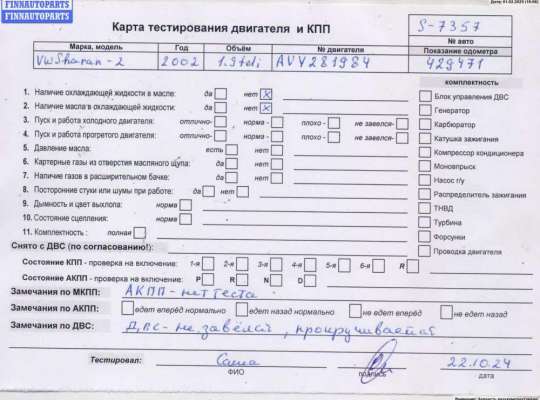 FINNAUTOPARTS
FINNAUTOPARTS
FINNAUTOPARTS
Карта тестирования двигателя и КПП
S-7357
№ авто
Марка, модель Год Объём № двигателя Показание одометра
VW Sharan-2 2002 1.9tdi AVY281984 429471
комплектность
1. Наличие охлаждающей жидкости в масле: да нет x
2. Наличие масла в охлаждающей жидкости: да нет x
3. Пуск и работа холодного двигателя: отлично- норма - плохо - не завелся-
4. Пуск и работа прогретого двигателя: отлично- норма - плохо - не завелся-
5. Давление масла: есть нет
6. Картерные газы из отверстия масляного щупа: да нет
7. Наличие газов в расширительном бачке: да нет
8. Посторонние стуки или шумы при работе: да нет
9. Дымность и цвет выхлопа: норма
10. Состояние сцепления: норма
11. Комплектность : полная
Блок управления ДВС
Генератор
Карбюратор
Катушка зажигания
Компрессор кондиционера
Моновпрыск
Насос г/у
Распределитель зажигания
ТНВД
Турбина
Форсунки
Проводка двигателя
Снято с ДВС (по согласованию!):
Состояние КПП - проверка на включение: 1-я 2-я 3-я 4-я 5-я 6-я R
Состояние АКПП - проверка на включение: P R N D
Замечания по МКПП: АКПП - нет теста
Замечания по АКПП: едет вперёд нормально едет назад нормально не едет вперёд не едет назад
Замечания по ДВС: ДВС - не завёлся, прокручивается
Тестировал: Саша 22.10.24
ФИО подпись дата